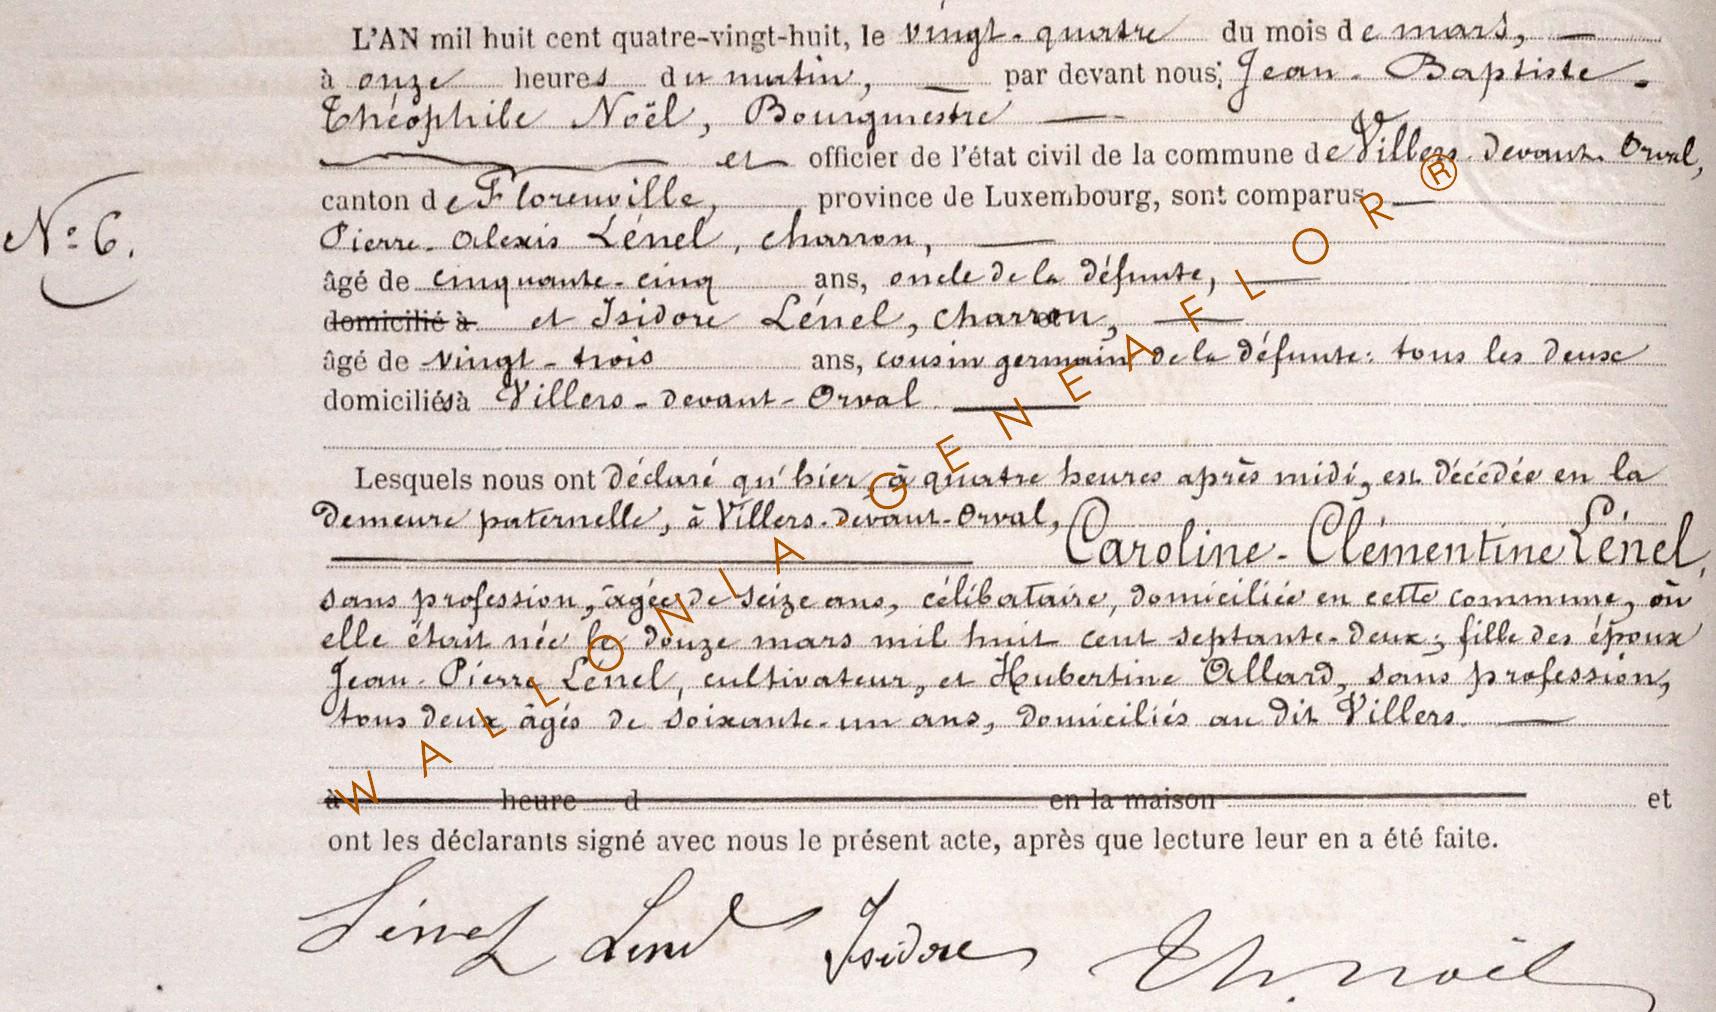 L'AN mil huit cent quatre-vingt-huit, le vingt-quatre du mois de mars, —
à onze heures du matin, — par devant nous, Jean-Baptiste-
Théophile Noël, Bourgmestre —
et officier de l'état civil de la commune de Villers devant Orval,
canton de Florenville, province de Luxembourg, sont comparus —
N° 6.
Pierre-Alexis Lénel, charron, —
âgé de cinquante-cinq ans, oncle de la défunte, —
domicilié à et Isidore Lénel, charron, —
âgé de vingt-trois ans, cousin germain de la défunte: tous les deux
domiciliés à Villers-devant-Orval —
Lesquels nous ont déclaré qu'hier, à quatre heures après midi, est décédée en la
demeure paternelle, à Villers-devant-Orval,
Caroline-Clémentine Lénel,
sans profession, âgée de seize ans, célibataire, domiciliée en cette commune, où
elle était née le douze mars mil huit cent septante-deux; fille des époux
Jean-Pierre Lénel, cultivateur, et Hubertine Allard, sans profession,
tous deux âgés de soixante-un ans, domiciliés au dit Villers. —
à heure d en la maison et
ont les déclarants signé avec nous le présent acte, après que lecture leur en a été faite.
Lénel Lénel Isidore Th. Noël
WALLONIA GENEAFLOR®